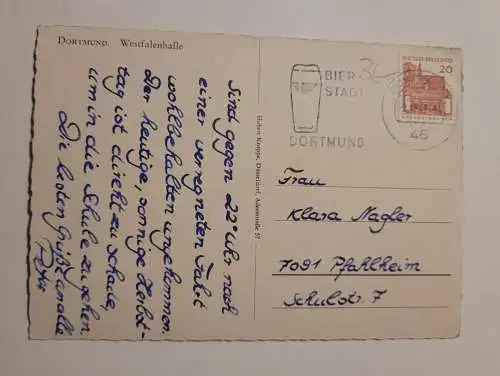 DORTMUND. Westfalenhalle
Sind gegen 22⁰ Uhr nach
einer verregneten Fahrt
wohlbehalten angekommen.
Der heutige, sonnige Herbst-
tag ist direkt zu schade,
um in die Schule zu gehen.
Die besten Grüße an alle
Hubert Knepper, Düsseldorf, Adersstraße 57
BIER
STADT
DORTMUND
DEUTSCHE BUNDESPOST
20
46
Frau
Klara Nagler
7091 Pfahlheim
Schulstr. 7